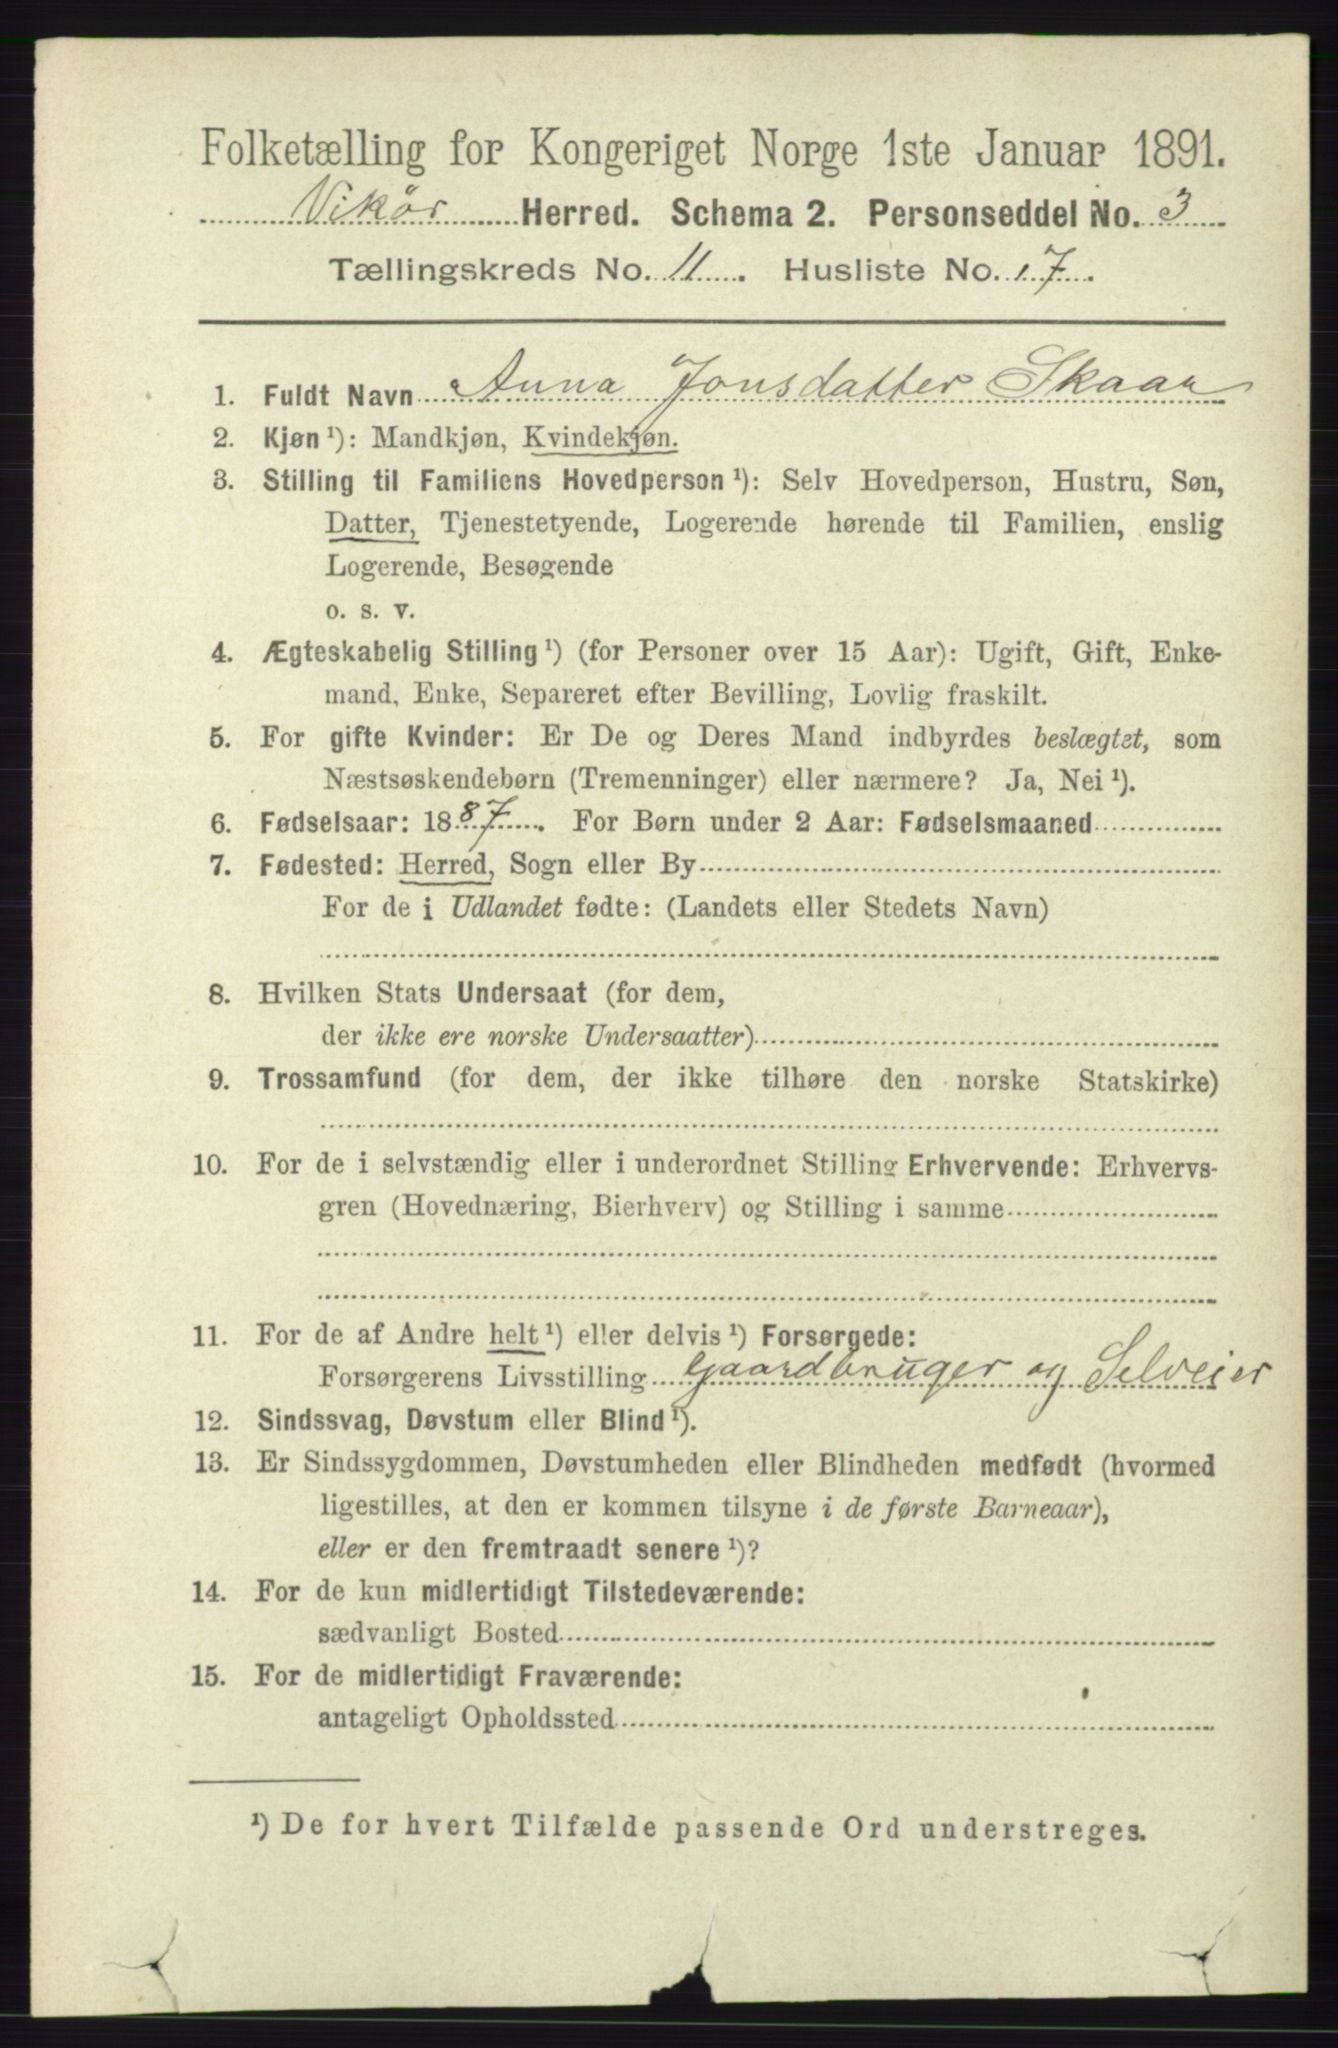 Folketælling for Kongeriget Norge 1ste Januar 1891.
Vikør Herred. Schema 2. Personseddel No. 3
Tællingskreds No. 11. Husliste No. 7.
1. Fuldt Navn Anna Jonsdatter Skaar
2. Kjøn ¹): Mandkjøn, Kvindekjøn.
3. Stilling til Familiens Hovedperson ¹): Selv Hovedperson, Hustru, Søn,
Datter, Tjenestetyende, Logerende hørende til Familien, enslig
Logerende, Besøgende
o. s. v.
4. Ægteskabelig Stilling ¹) (for Personer over 15 Aar): Ugift, Gift, Enke-
mand, Enke, Separeret efter Bevilling, Lovlig fraskilt.
5. For gifte Kvinder: Er De og Deres Mand indbyrdes beslægtet, som
Næstsøskendebørn (Tremenninger) eller nærmere? Ja, Nei ¹).
6. Fødselsaar: 1887. For Børn under 2 Aar: Fødselsmaaned
7. Fødested: Herred, Sogn eller By
For de i Udlandet fødte: (Landets eller Stedets Navn)
8. Hvilken Stats Undersaat (for dem,
der ikke ere norske Undersaatter)
9. Trossamfund (for dem, der ikke tilhøre den norske Statskirke)
10. For de i selvstændig eller i underordnet Stilling Erhvervende: Erhvervs-
gren (Hovednæring, Bierhverv) og Stilling i samme
11. For de af Andre helt ¹) eller delvis ¹) Forsørgede:
Forsørgerens Livsstilling Gaardbruger og Selveier
12. Sindssvag, Døvstum eller Blind ¹).
13. Er Sindssygdommen, Døvstumheden eller Blindheden medfødt (hvormed
ligestilles, at den er kommen tilsyne i de første Barneaar),
eller er den fremtraadt senere ¹)?
14. For de kun midlertidigt Tilstedeværende:
sædvanligt Bosted
15. For de midlertidigt Fraværende:
antageligt Opholdssted
¹) De for hvert Tilfælde passende Ord understreges.